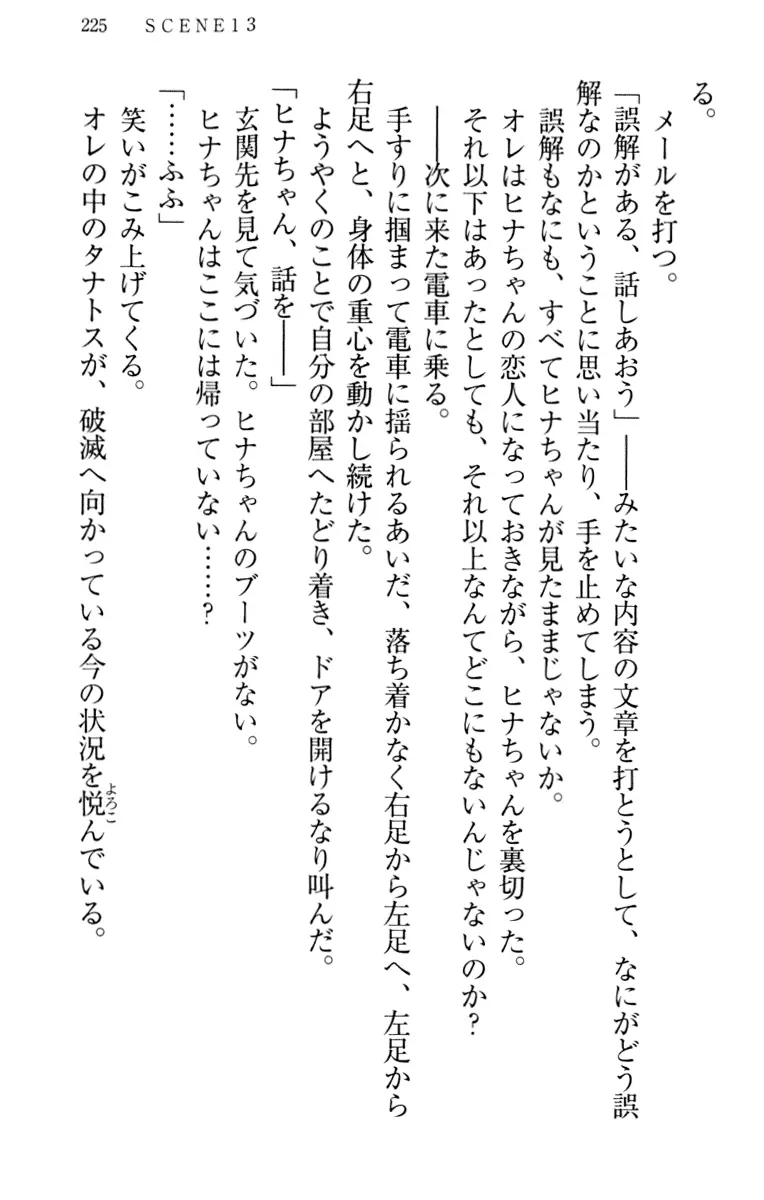 225 SCENE13
る。
メールを打つ。
「誤解がある、話しあおう」――みたいな内容の文章を打とうとして、なにがどう誤
解なのかということに思い当たり、手を止めてしまう。
誤解もなにも、すべてヒナちゃんが見たままじゃないか。
オレはヒナちゃんの恋人になっておきながら、ヒナちゃんを裏切った。
それ以下はあったとしても、それ以上なんてどこにもないんじゃないのか?
――次に来た電車に乗る。
手すりに掴まって電車に揺られるあいだ、落ち着かなく右足から左足へ、左足から
右足へと、身体の重心を動かし続けた。
ようやくのことで自分の部屋へたどり着き、ドアを開けるなり叫んだ。
「ヒナちゃん、話を――」
玄関先を見て気づいた。ヒナちゃんのブーツがない。
ヒナちゃんはここには帰っていない……?
「……ふふ」
笑いがこみ上げてくる。
オレの中のタナトスが、破滅へ向かっている今の状況を悦んでいる。
よろこ